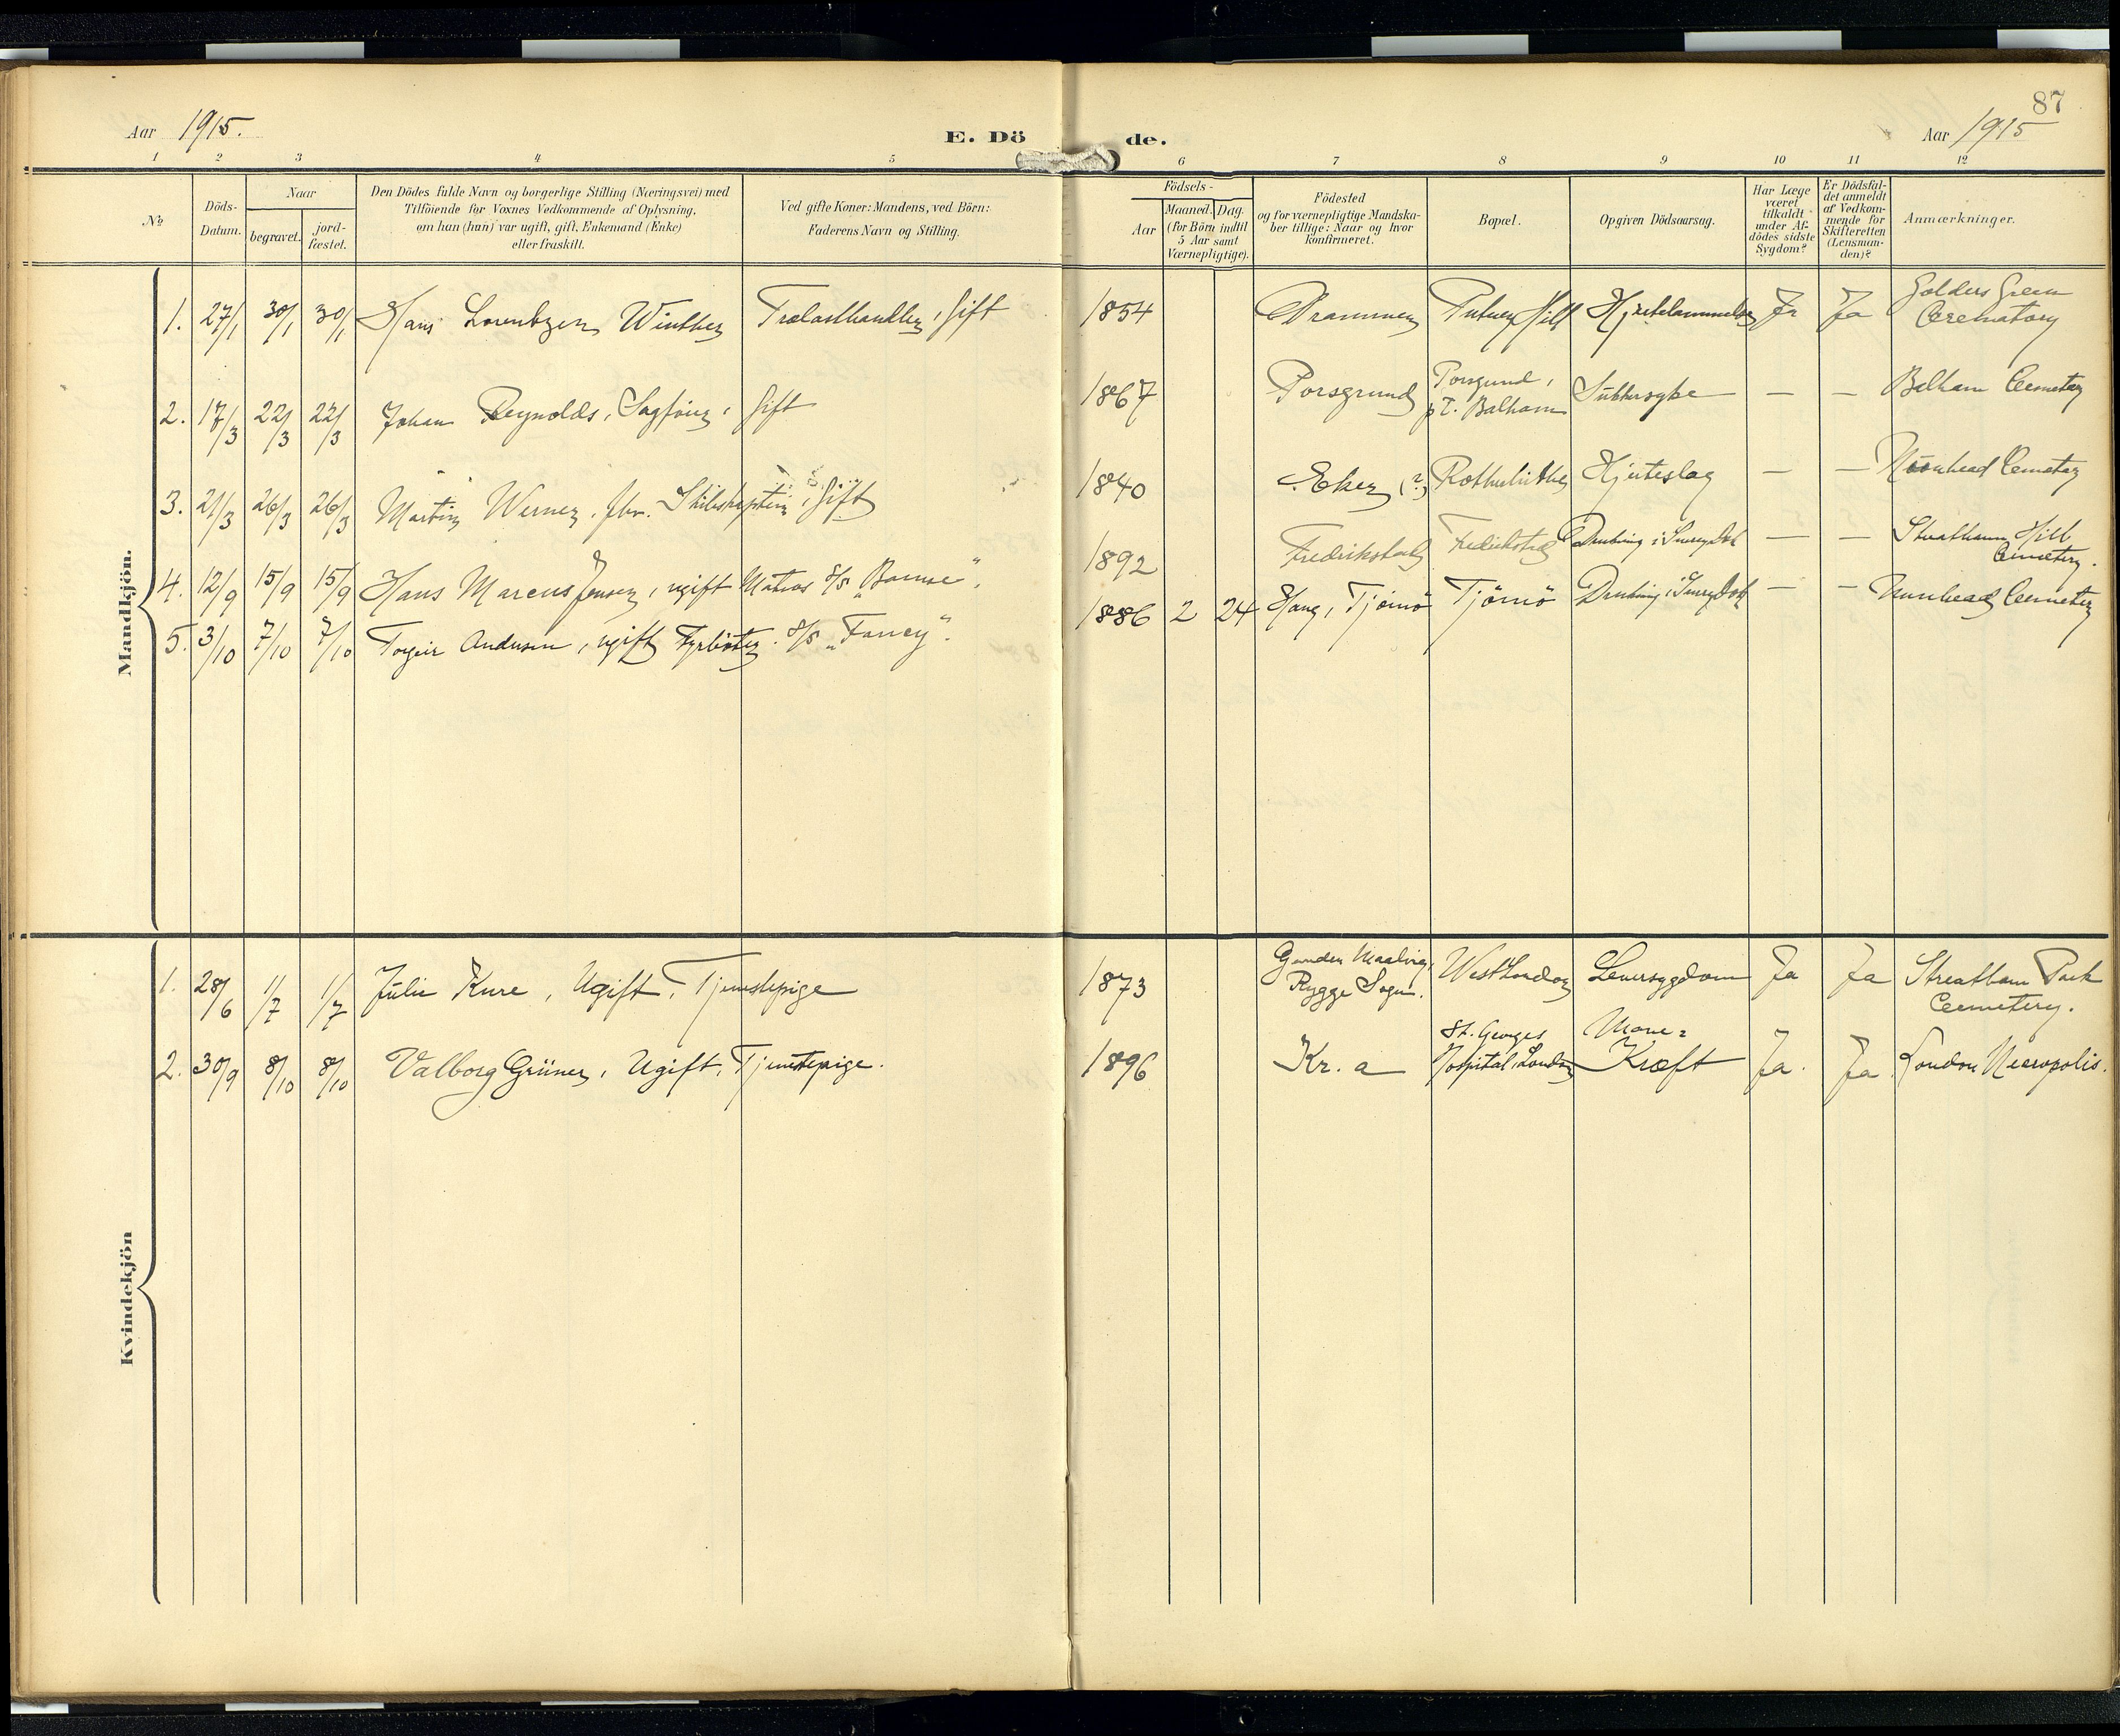 87
Aar 1915.
E. Dö de.
Aar 1915
1 2 3 4 5 6 7 8 9 10 11 12
No
Döds-Datum.
Naar
begravet.
jord-fæstet.
Den Dödes fulde Navn og borgerlige Stilling (Næringsvei) med
Tilföiende for Voxnes Vedkommende af Oplysning,
om han (hun) var ugift, gift, Enkemand (Enke)
eller fraskilt.
Ved gifte Koner: Mandens, ved Börn:
Faderens Navn og Stilling.
Födsels-
Aar
Maaned. Dag.
(for Börn indtil
5 Aar samt
Værnepligtige).
Födested
og for værnepligtige Mandska-
ber tillige: Naar og hvor
konfirmeret.
Bopæl.
Opgiven Dödsaarsag.
Har Læge
været
tilkaldt
under Af-
dödes sidste
Sygdom?
Er Dödsfal-
det anmeldt
af Vedkom-
mende for
Skifteretten
(Lensman-
den)?
Anmærkninger.
Mandkjön.
1. 27/1 30/1 30/1 Hans Lorentzen Winther Trælasthandler, Gift 1854 Drammen Putney Hill Hjertelammelse Ja Ja Golders Green
Crematory
2. 17/3 22/3 22/3 Johan Reynolds, Sagfører, Gift 1867 Porsgrund Porsgrund,
p.T. Balham Sukkersyke — — Balham Cemetery
3. 21/3 26/3 26/3 Martin Werner, fhv. Skibskaptein, Gift 1840 Eker (?) Rotherhithe Hjerteslag — — Nunhead Cemetery
4. 12/9 15/9 15/9 Hans Marcus Jensen, ugift Matros S/S "Bamse". 1892 Fredrikstad Fredrikstad Drukning i Surrey Dok — — Streatham Hill
Cemetery.
5. 3/10 7/10 7/10 Torgeir Andersen, ugift Fyrbøter. S/S "Farrey". 1886 2 24 Haug, Tjömö Tjömö Drukning i Surrey Dok — — Nunhead Cemetery
Kvindekjön
1. 28/6 1/7 1/7 Julie Kure, Ugift, Tjenestepige 1873 Gaarden
Rygge Sogn. West London Leversygdom Ja Ja Streatham Park
Cemetery.
2. 30/9 8/10 8/10 Valborg Grüner, Ugift, Tjenestepige. 1896 Kr. a St. Georges
Hospital, London Mave=
Kræft Ja. Ja London Necropolis.